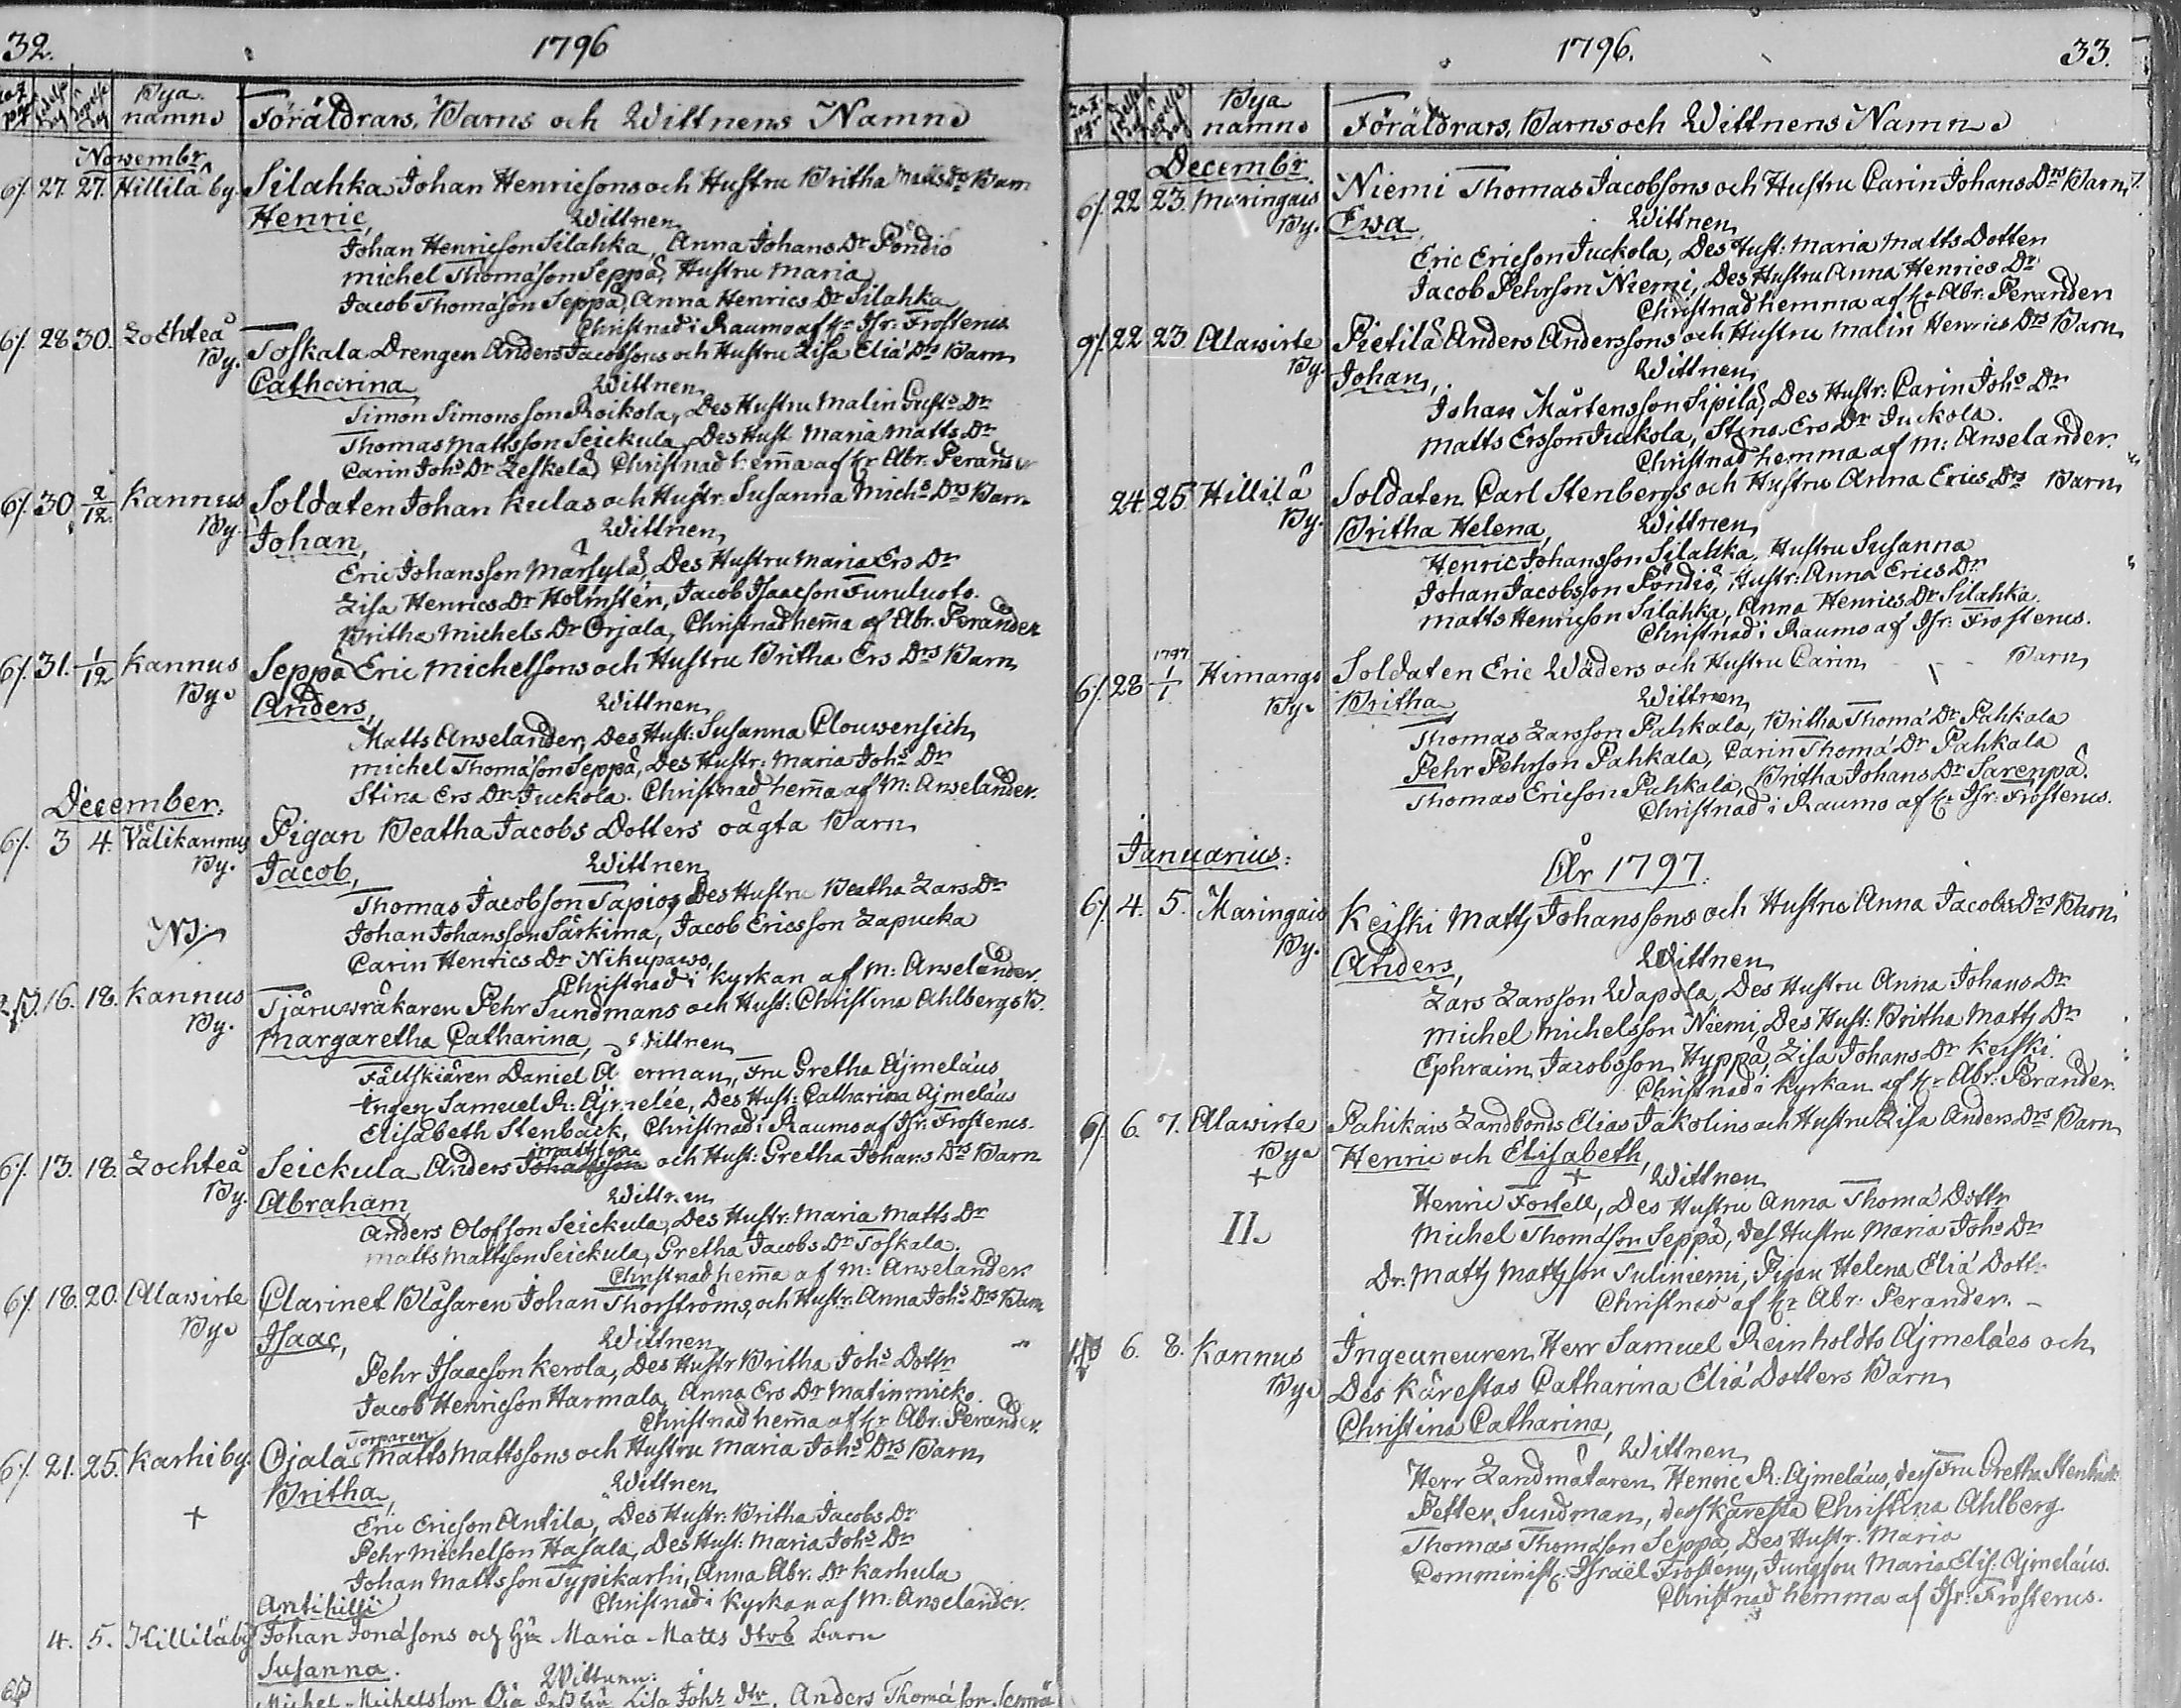 32.
1796
Bya namn
Föräldrars, Barns och Wittnens Namn
Novembr
6/. 27. 27. Hillilä by. Silahka Johan Henricsons och Hustru Britha Matts Drs Barn
Henric, Wittnen
Johan Henricson Silahka, Anna Johans Dr Pöndiö
Michel Thomæson Seppä, Hustru Maria
Jacob Thomæson Seppä, Anna Henrics Dr Silahka
Christnad i Raumo af Hr Isr: Frostenus
6/. 28 30. Lochteå By. Toskala Drengen Anders Jacobssons och Hustru Lisa Eliæ Drs Barn
Catharina Wittnen
Simon Simonsson Roikola, Des Hustru Malin Gusts Dr
Thomas Mattsson Seickula, Des Hust Maria Matts Dr
Carin Johs Dr Leskelä, Christnad hem̄a af Hr Abr. Perander
6/. 30. 2/12. Kannus By. Soldaten Johan Kulas och Hustr. Susanna Michs Drs Barn
Johan, Wittnen
Eric Johansson Märsylä, Des Hustru Maria Ers Dr
Lisa Henrics Dr Holmstén, Jacob Isaacson Furuluoto.
Britha Michels Dr Orjala, Christnad hem̄a af Abr. Perander
6/. 31. 1/12 Kannus By. Seppä Eric Michelsons och Hustru Britha Ers Drs Barn
Anders, Wittnen
Matts Anselander, Des Hust: Susanna Clouwensich
Michel Thomæson Seppä, Des Hustr: Maria Johs Dr
Stina Ers Dr Juckola. Christnad hem̄a af M: Anselander.
December.
6/. 3 4. Välikannus By. Pigan Beatha Jacobs Dotters oägta Barn
Jacob, Wittnen
Thomas Jacobson Tapio, Des Hustru Beatha Lars Dr
Johan Johansson Särkima, Jacob Ericsson Lapucka
Carin Henrics Dr Nikupaws,
Christnad i Kyrkan af M: Anselander.
16. 18. Kannus By. Tjäruwräkaren Pehr Sundmans och Hust: Christina Ahlbergs B.
Margaretha Catharina, Wittnen
Fältskiären Daniel Åkerman, Fru Gretha Ajmelæus
Ingen Samuel R: Ajmelée, Des Hust: Catharina Ajmelæus
Elisabeth Stenbäck, Christnad i Raumo af Isr. Frostenus.
Mattssons
6/. 13. 18. Lochteå By. Seickula Anders Johansson och Hust: Gretha Johans Drs Barn
Abraham Wittnen
Anders Olofsson Seickula, Des Hustr: Maria Matts Dr
Matts Mattsson Seickula, Gretha Jacobs Dr Toskala,
Christnad hem̄a af M: Anselander.
6/. 18. 20. Alawirte By. Clarinet Blåsaren Johan Thorströms och Hustr: Anna Johs Drs Barn
Isaac, Wittnen
Pehr Isaacson Kerola, Des Hustr Britha Johs Dottr
Jacob Henricson Harmala, Anna Ers Dr Matinmicko.
Christnad hem̄a af Hr Abr. Perander.
Torparen
6/. 21. 25. Karhi by. Ojala Matts Mattssons och Hustru Maria Johs Drs Barn
+ Britha, Wittnen
Eric Ericson Antila, Des Hustr: Britha Jacobs Dr
Pehr Michelson Hasala, Des Hust: Maria Johs Dr
Johan Mattsson Typikarhi, Anna Abr. Dr Karhula
Christnad i Kyrkan af M: Anselander.
Antihilli
4. 5. Hillilä by Johan Jonæsons och Hu Maria Matts dtrs barn
Susanna. Wittnen:
Michel Michelsson Oja dess hu Lisa Johs dtr. Anders Thomæson
1796.
33.
Bya namn
Föräldrars, Barns och Wittnens Namn
Decembr
6/. 22 23. Maringais By. Niemi Thomas Jacobsons och Hustru Carin Johans Drs Barn
Ewa Wittnen
Eric Ericson Juckola, Des Hust: Maria Matts Dotter
Jacob Pehrson Niemi, Des Hustru Anna Henrics Dr
Christnad hemma af Hr Abr. Perander
9/. 22 23. Alawirte By. Pietilä Anders Anderssons och Hustru Malin Henrics Drs Barn
Johan, Wittnen
Johan Mårtensson Sipilä, Des Hustr: Carin Johs Dr
Matts Ersson Juckola, Stina Ers Dr Juckola.
Christnad hemma af M: Anselander.
24 25. Hillilä By. Soldaten Carl Stenbergs och Hustru Anna Erics Drs Barn
Britha Helena, Wittnen
Henric Johansson Silahka, Hustru Susanna
Johan Jacobsson Pöndiö, Hustr: Anna Erics Dr
Matts Henricson Silahka, Anna Henrics Dr Silahka.
Christnad i Raumo af Isr. Frostenus.
1797
6/. 28 1/1. Himango By. Soldaten Eric Wäders och Hustru Carin - - Barn
Britha Wittnen
Thomas Larsson Pahkala, Britha Thomæ Dr Pahkala
Pehr Pehrson Pahkala, Carin Thomæ Dr Pahkala
Thomas Ericson Pahkala, Britha Johans Dr Sarenpä.
Christnad i Raumo af Hr Isr. Frostenus.
Januarius:
År 1797.
6/. 4. 5. Maringais By. Keiski Matts Johanssons och Hustru Anna Jacobs Drs Barn
Anders, Wittnen
Lars Larsson Wapola, Des Hustru Anna Johans Dr
Michel Michelsson Niemi, Des Hust: Britha Matts Dr
Ephraim Jacobsson Hyppä, Lisa Johans Dr Keiski.
Christnad i Kyrkan af Hr Abr. Perander.
6/. 6. 7. Alawirte By Pahikais Landbonds Elias Jakolins och Hustru Lisa Anders Drs Barn
+ Henric och Elisabeth, + Wittnen
Henric Fortell, Des Hustru Anna Thomæ Dottr
II. Michel Thomæson Seppä, Des Hustru Maria Johs Dr
Dr. Matts Mattsson Juliniemi, Pigan Helena Eliæ Dott
Christnad af Hr Abr: Perander. -
6. 8. Kannus By. Ingeuneuren Herr Samuel Reinholdts Ajmelæes och
Des Kärestas Catharina Eliæ Dotters Barn
Christina Catharina,
Wittnen
Herr Landmätaren Henric R: Ajmelæus, dess Fru Gretha Stenbäck
Petter Sundman, dess Käresta Christina Ahlberg
Thomas Thomæson Seppä, Des Hustr. Maria
Comminist. Israël Frosteny, Jungfou Maria Elis. Ajmelæus.
Christnad hemma af Isr. Frostenus.